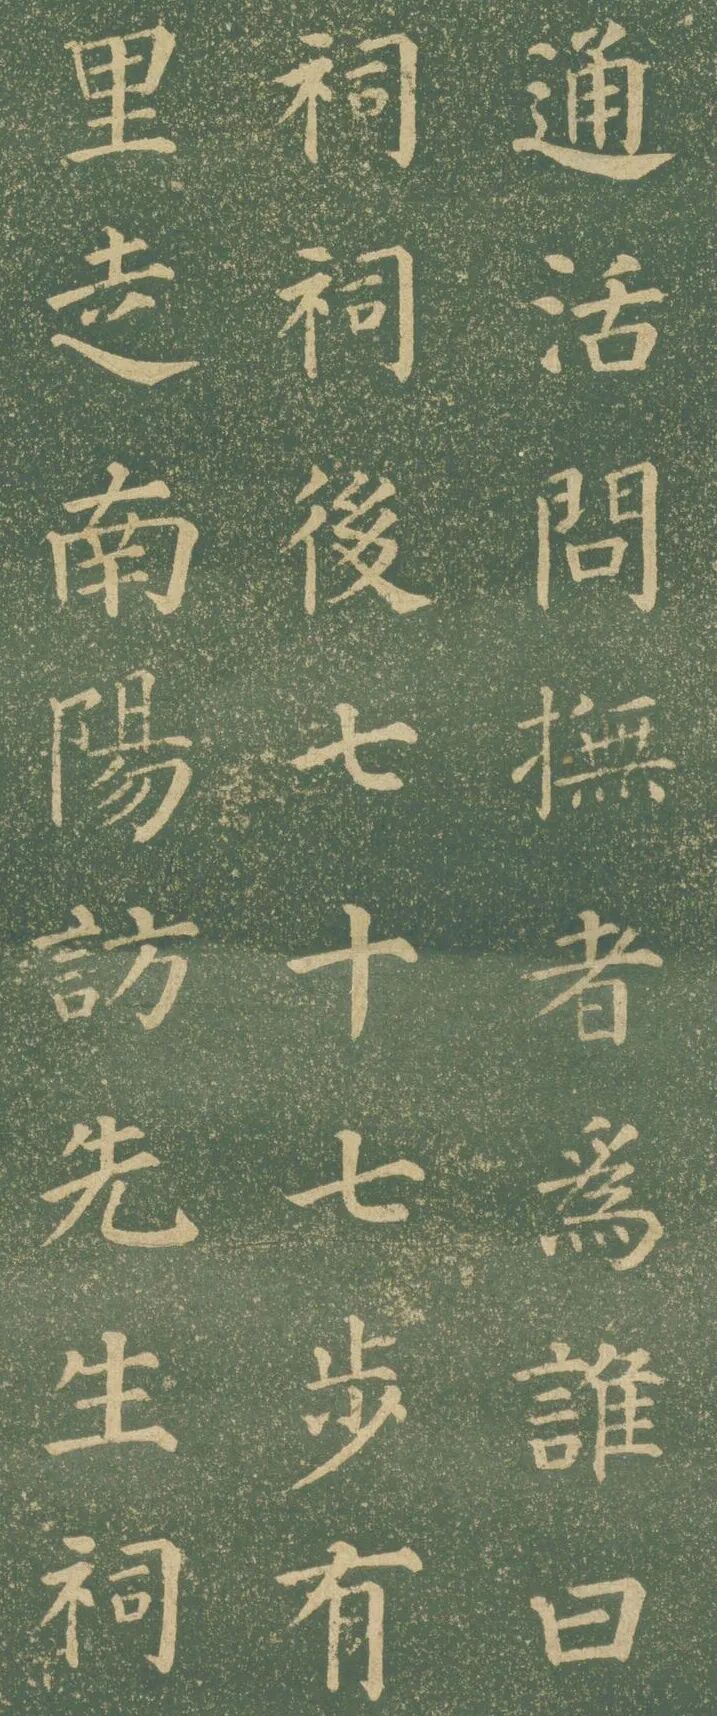 通活問撫者爲誰曰
祠祠後七十七步有
里走南陽訪先生祠